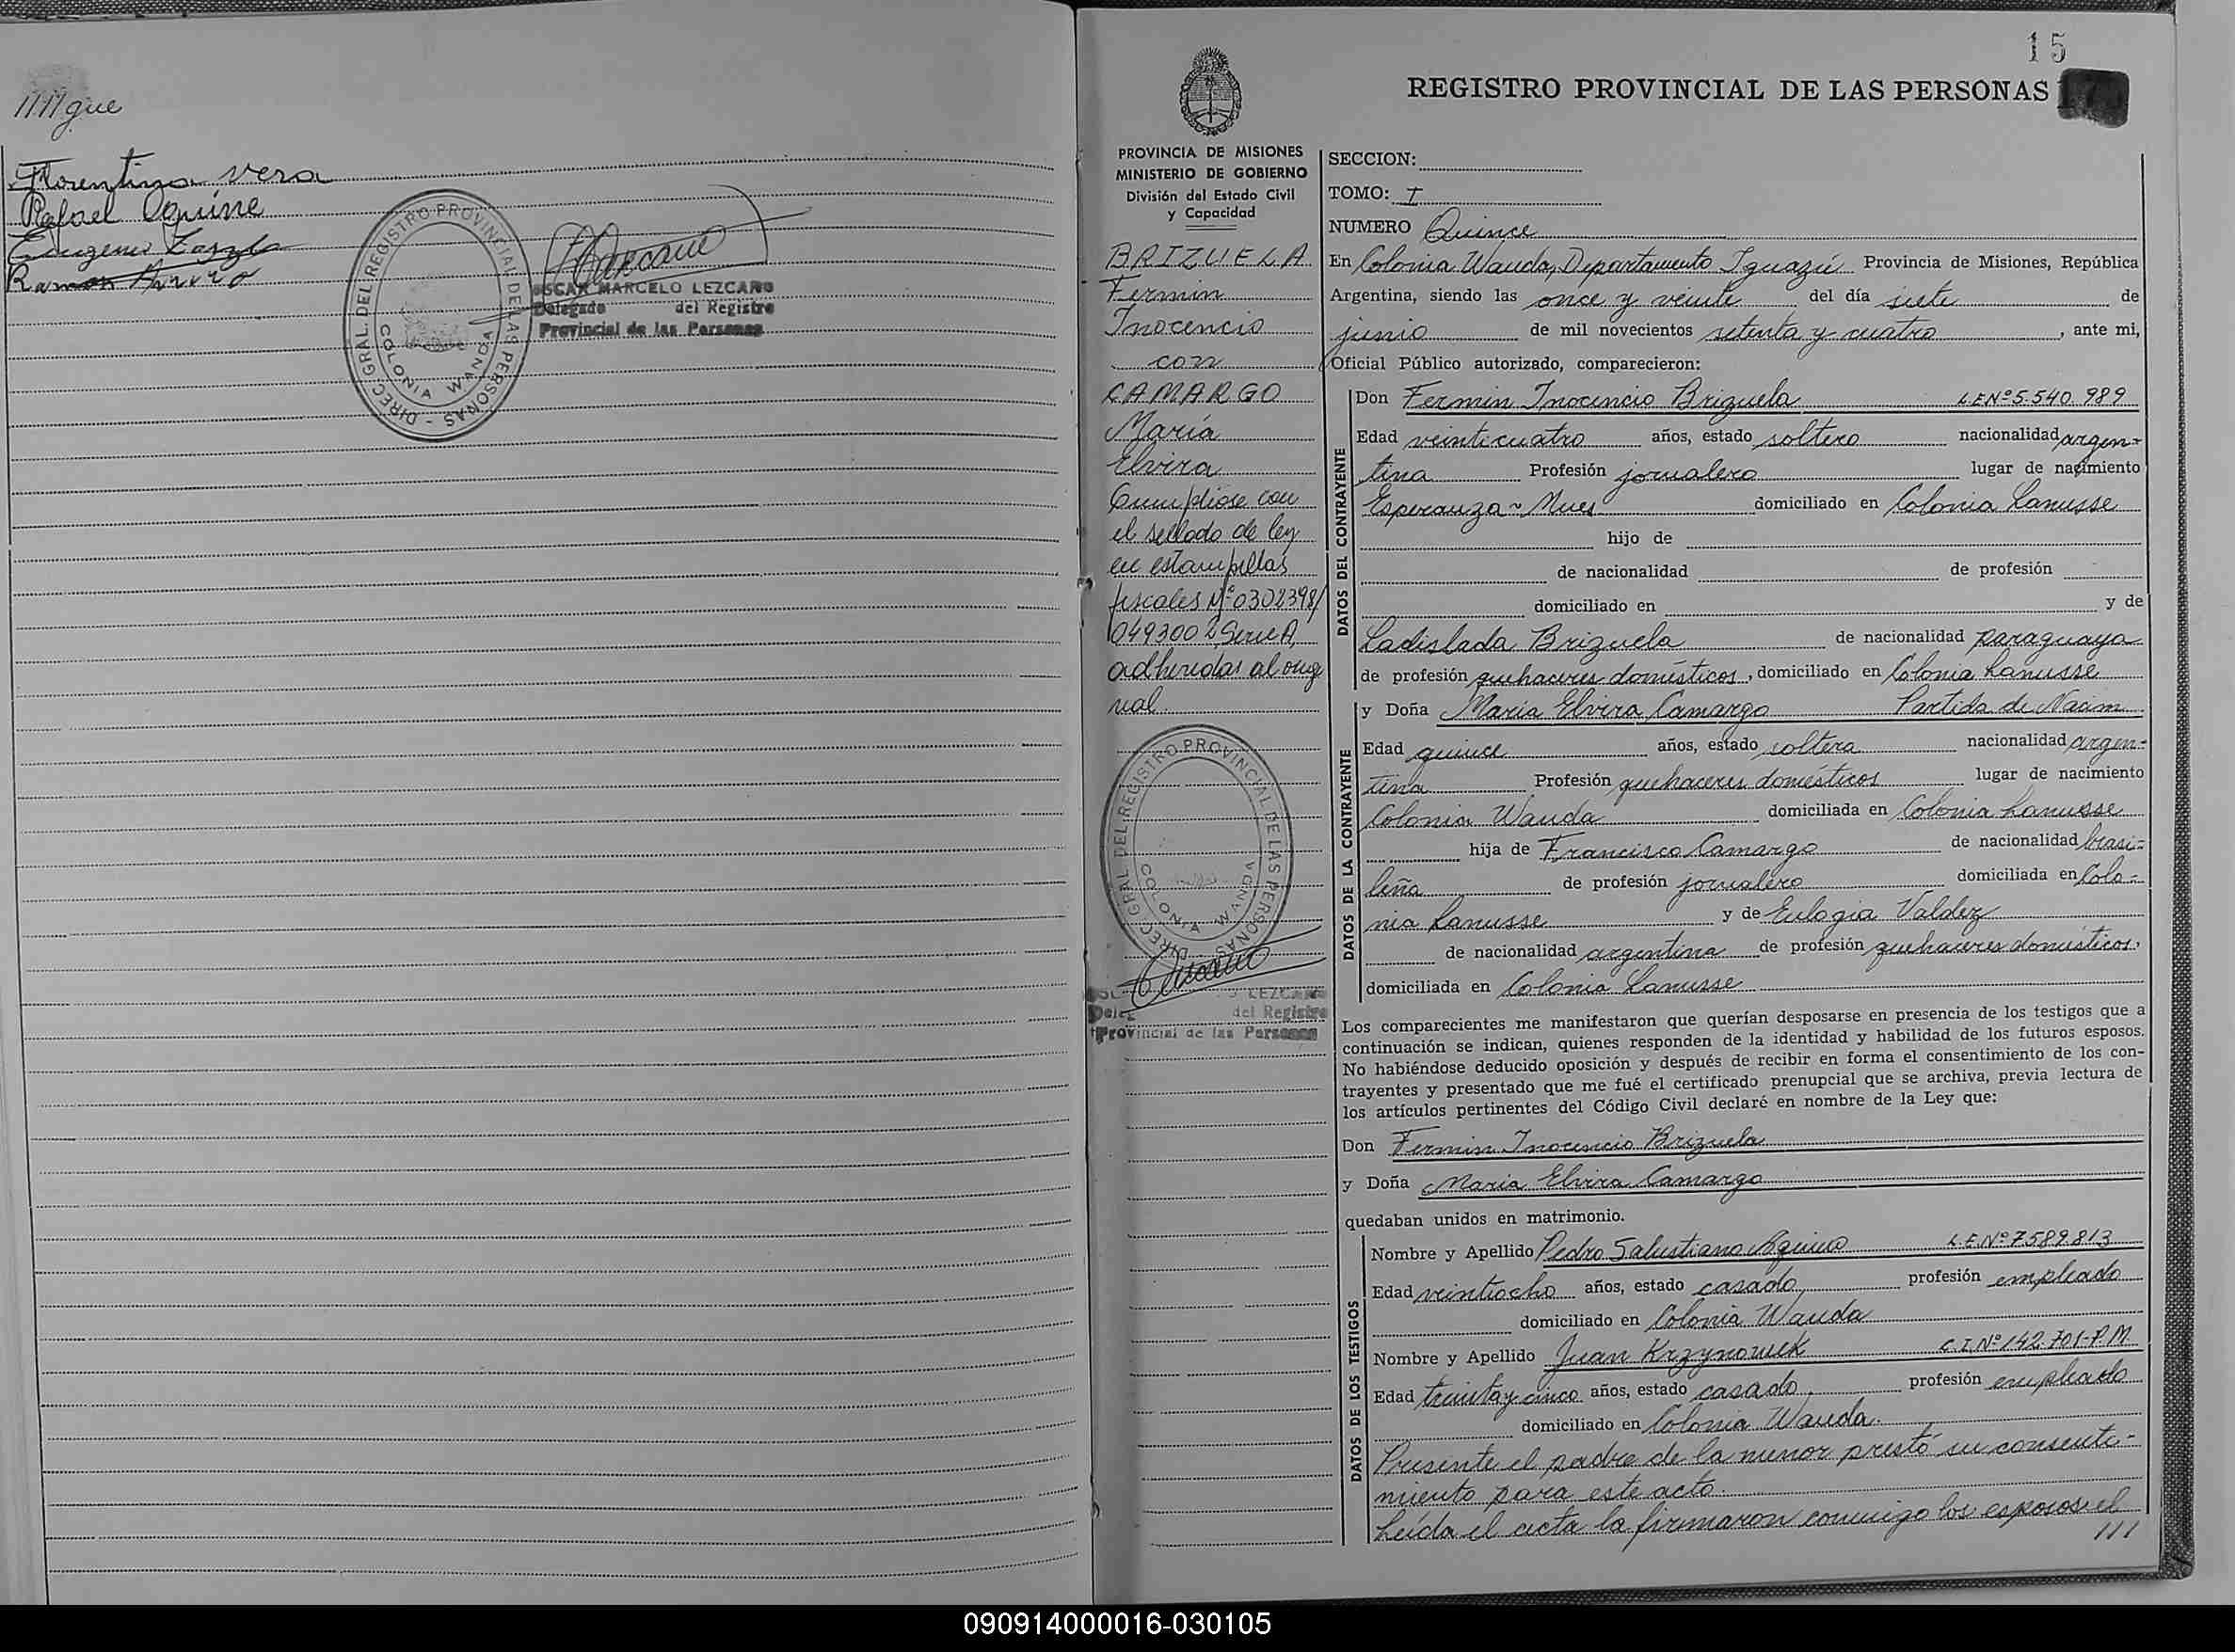 gue
Florentina vera
Rafael
Eugenio
Ramon
DIREC. GRAL. DEL REGISTRO PROVINCIAL DE LAS PERSONAS -
COLONIA WANDA
OSCAR MARCELO LEZCANO
Delegado del Registro
Provincial de las Personas
15
REGISTRO PROVINCIAL DE LAS PERSONAS
PROVINCIA DE MISIONES
MINISTERIO DE GOBIERNO
División del Estado Civil
y Capacidad
BRIZUELA
Fermin
Inocencio
con
CAMARGO
María
Elvira
Cumpliose con
el sellado de ley
en estampillas
fiscales Nº 0302398/
0493002 Serie A,
adheridas al orig
nal.
DIREC. GRAL. DEL REGISTRO PROVINCIAL DE LAS PERSONAS
COLONIA WANDA
LEZCANO
del Registro
Provincial de las Personas
SECCION:
TOMO: I
NUMERO Quince
En Colonia Wanda, Departamento Iguazú Provincia de Misiones, República
Argentina, siendo las once y veinte del día siete de
junio de mil novecientos setenta y cuatro, ante mi,
Oficial Público autorizado, comparecieron:
DATOS DEL CONTRAYENTE
Don Fermin Inocencio Brizuela L.E.Nº 5.540.989
Edad veinticuatro años, estado soltero nacionalidad argen-
tina Profesión jornalero lugar de nacimiento
Esperanza - Mnes domiciliado en Colonia Lanusse
hijo de
de nacionalidad de profesión
domiciliado en y de
Ladislada Brizuela de nacionalidad paraguaya
de profesión quehaceres domésticos, domiciliado en Colonia Lanusse
DATOS DE LA CONTRAYENTE
y Doña Maria Elvira Camargo Partida de Nacim
Edad quince años, estado soltera nacionalidad argen-
tina Profesión quehaceres domésticos lugar de nacimiento
Colonia Wanda domiciliada en Colonia Lanusse
hija de Francisco Camargo de nacionalidad brasi-
leña de profesión jornalero domiciliada en Colo-
nia Lanusse y de Eulogia Valdez
de nacionalidad argentina de profesión quehaceres domésticos,
domiciliada en Colonia Lanusse
Los comparecientes me manifestaron que querían desposarse en presencia de los testigos que a
continuación se indican, quienes responden de la identidad y habilidad de los futuros esposos.
No habiéndose deducido oposición y después de recibir en forma el consentimiento de los con-
trayentes y presentado que me fué el certificado prenupcial que se archiva, previa lectura de
los artículos pertinentes del Código Civil declaré en nombre de la Ley que:
Don Fermin Inocencio Brizuela
y Doña Maria Elvira Camargo
quedaban unidos en matrimonio.
DATOS DE LOS TESTIGOS
Nombre y Apellido Pedro Salustiano Aquino L.E.Nº 7589813
Edad veintiocho años, estado casado, profesión empleado
domiciliado en Colonia Wanda
Nombre y Apellido Juan Krzynowek C.I.Nº 142.701-P.M.
Edad treinta y cinco años, estado casado, profesión empleado
domiciliado en Colonia Wanda.
Presente el padre de la menor prestó su consenti-
miento para este acto.
Leída el acta la firmaron conmigo los esposos el
///
090914000016-030105